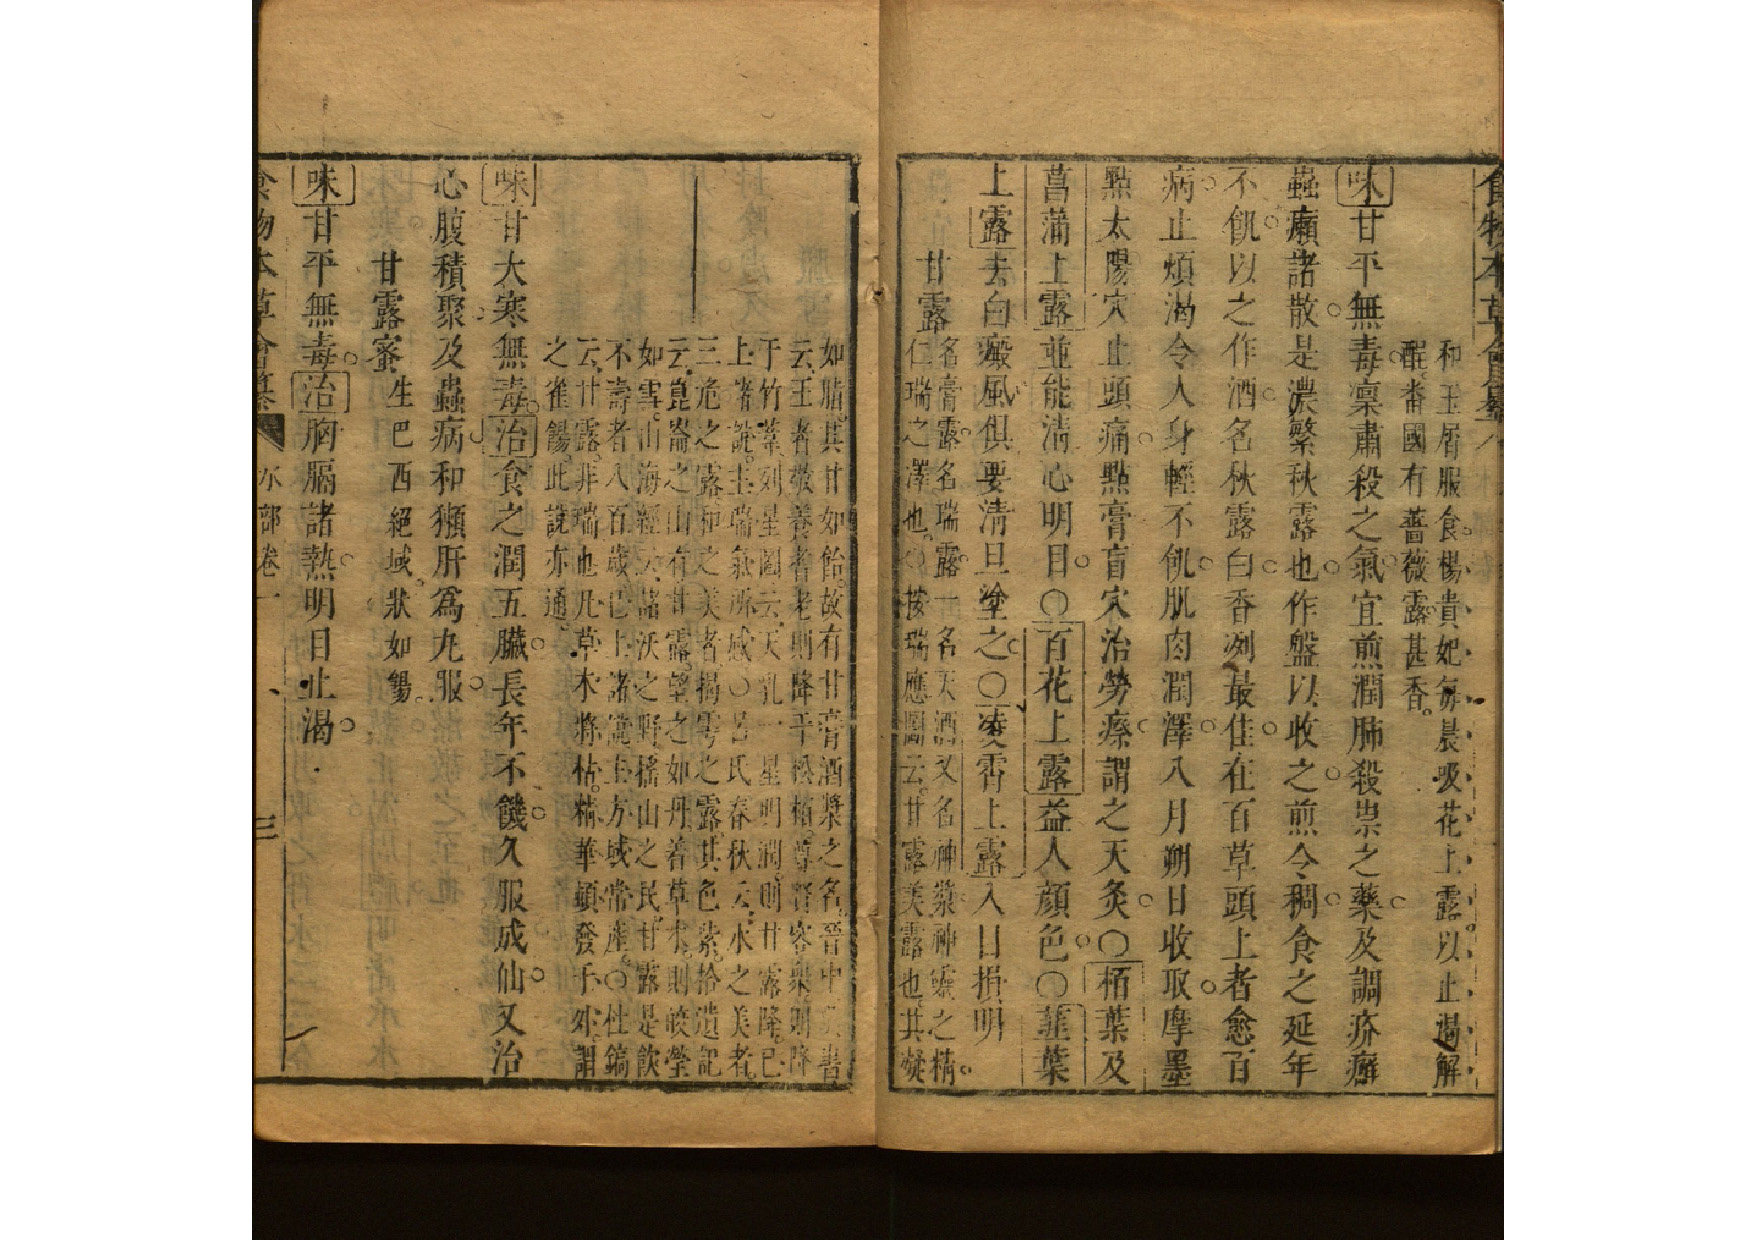 食物本草會纂
和玉屑服食。楊貴妃每晨吸花上露。以止渴解
酲番國有薔薇露甚香。
味甘平無毒凛肅殺之氣宜煎潤肺殺祟之藥及調疥癬
蟲癩諸散是濃繁秋露也作盤以收之煎令稠食之延年
不飢以之作酒名秋露白香冽最佳在百草頭上者愈百
病止煩渴令人身輕不飢肌肉潤澤八月朔日收取摩墨
點太陽穴止頭痛點膏盲穴治勞瘵謂之天灸〇栢葉及
菖蒲上露並能淸心明目〇百花上露益人顔色〇韮葉
上露去白癜風俱要淸旦塗之〇凌霄上露入目損明
甘露
名膏露名瑞露一名天酒又名神漿神靈之精。
仁瑞之澤也。按瑞應圖云。甘露美露也。其凝
如脂。其甘如飴。故有甘膏酒漿之名。晉中書
云、王者敬養耆老則降于松栢。尊賢容衆則降
于竹葦、列星圖云、天乳一星明潤。則甘露降。已
上諸說。主瑞氣所感〇呂氏春秋云、水之美者。
三危之露。和之美者、揭雩之露。其色紫。拾遺記
云、崑崙之山有甘露。望之如丹、着草木、則皎瑩
如雪。山海經云、諸沃之野。搖山之民。甘露是飲
不壽者八百歲。已上諸說。主方域常產。〇杜鎬
云、甘露。非瑞也。乃草木將枯。精華頓發于外。謂
之雀餳。此說亦通。
味甘大寒無毒治食之潤五臟長年不饑久服成仙又治
心腹積聚及蟲病和獺肝爲丸服
甘露蜜
生巴西絕域。狀如餳。
味甘平無毒治胸膈諸熱明目止渴
食物本草會纂
水部卷一
三